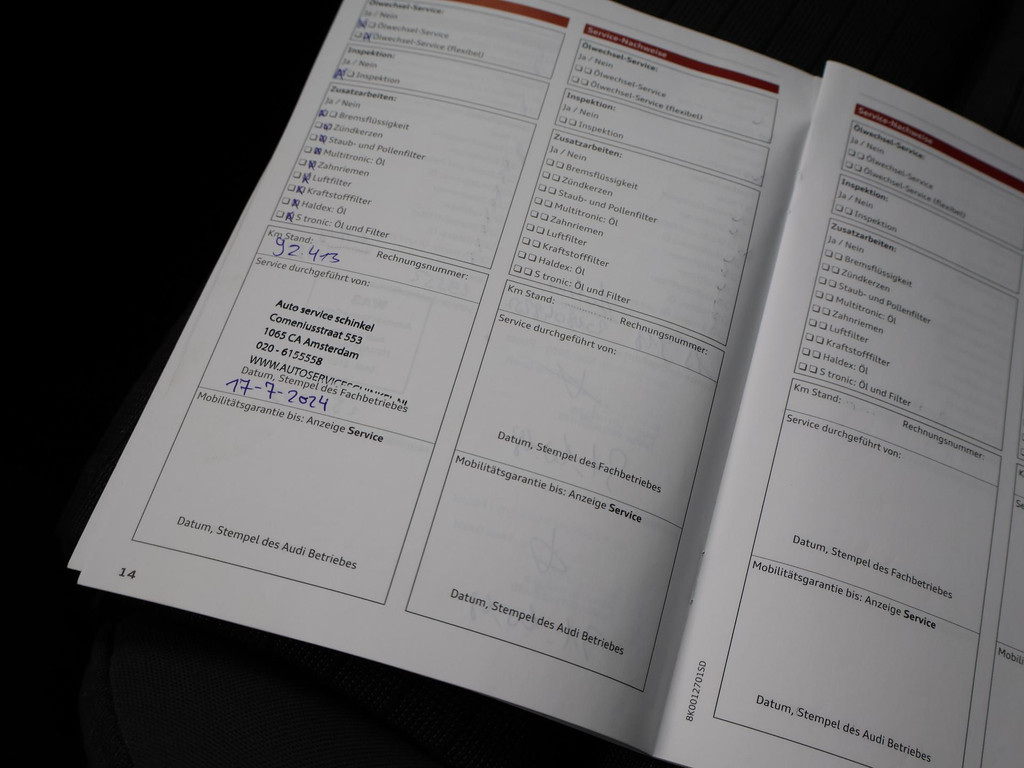 Ölwechsel-Service:
Ja / Nein
Ölwechsel-Service
Ölwechsel-Service (flexibel)
Inspektion:
Ja / Nein
Inspektion
Zusatzarbeiten:
Ja / Nein
Bremsflüssigkeit
Zündkerzen
Staub- und Pollenfilter
Multitronic: Öl
Zahnriemen
Luftfilter
Kraftstofffilter
Haldex: Öl
S tronic: Öl und Filter
Km Stand: Rechnungsnummer:
92.413
Service durchgeführt von:
Auto service schinkel
Comeniusstraat 553
1065 CA Amsterdam
020 - 6155558
WWW.AUTOSERVICESCHINKEL.NL
Datum, Stempel des Fachbetriebes
17-7-2024
Mobilitätsgarantie bis: Anzeige Service
Datum, Stempel des Audi Betriebes
14
Service-Nachweise
Ölwechsel-Service:
Ja / Nein
Ölwechsel-Service
Ölwechsel-Service (flexibel)
Inspektion:
Ja / Nein
Inspektion
Zusatzarbeiten:
Ja / Nein
Bremsflüssigkeit
Zündkerzen
Staub- und Pollenfilter
Multitronic: Öl
Zahnriemen
Luftfilter
Kraftstofffilter
Haldex: Öl
S tronic: Öl und Filter
Km Stand: Rechnungsnummer:
Service durchgeführt von:
Datum, Stempel des Fachbetriebes
Mobilitätsgarantie bis: Anzeige Service
Datum, Stempel des Audi Betriebes
8K0012701SD
Service-Nachweise
Ölwechsel-Service:
Ja / Nein
Ölwechsel-Service
Ölwechsel-Service (flexibel)
Inspektion:
Ja / Nein
Inspektion
Zusatzarbeiten:
Ja / Nein
Bremsflüssigkeit
Zündkerzen
Staub- und Pollenfilter
Multitronic: Öl
Zahnriemen
Luftfilter
Kraftstofffilter
Haldex: Öl
S tronic: Öl und Filter
Km Stand: Rechnungsnummer:
Service durchgeführt von:
Datum, Stempel des Fachbetriebes
Mobilitätsgarantie bis: Anzeige Service
Datum, Stempel des Audi Betriebes